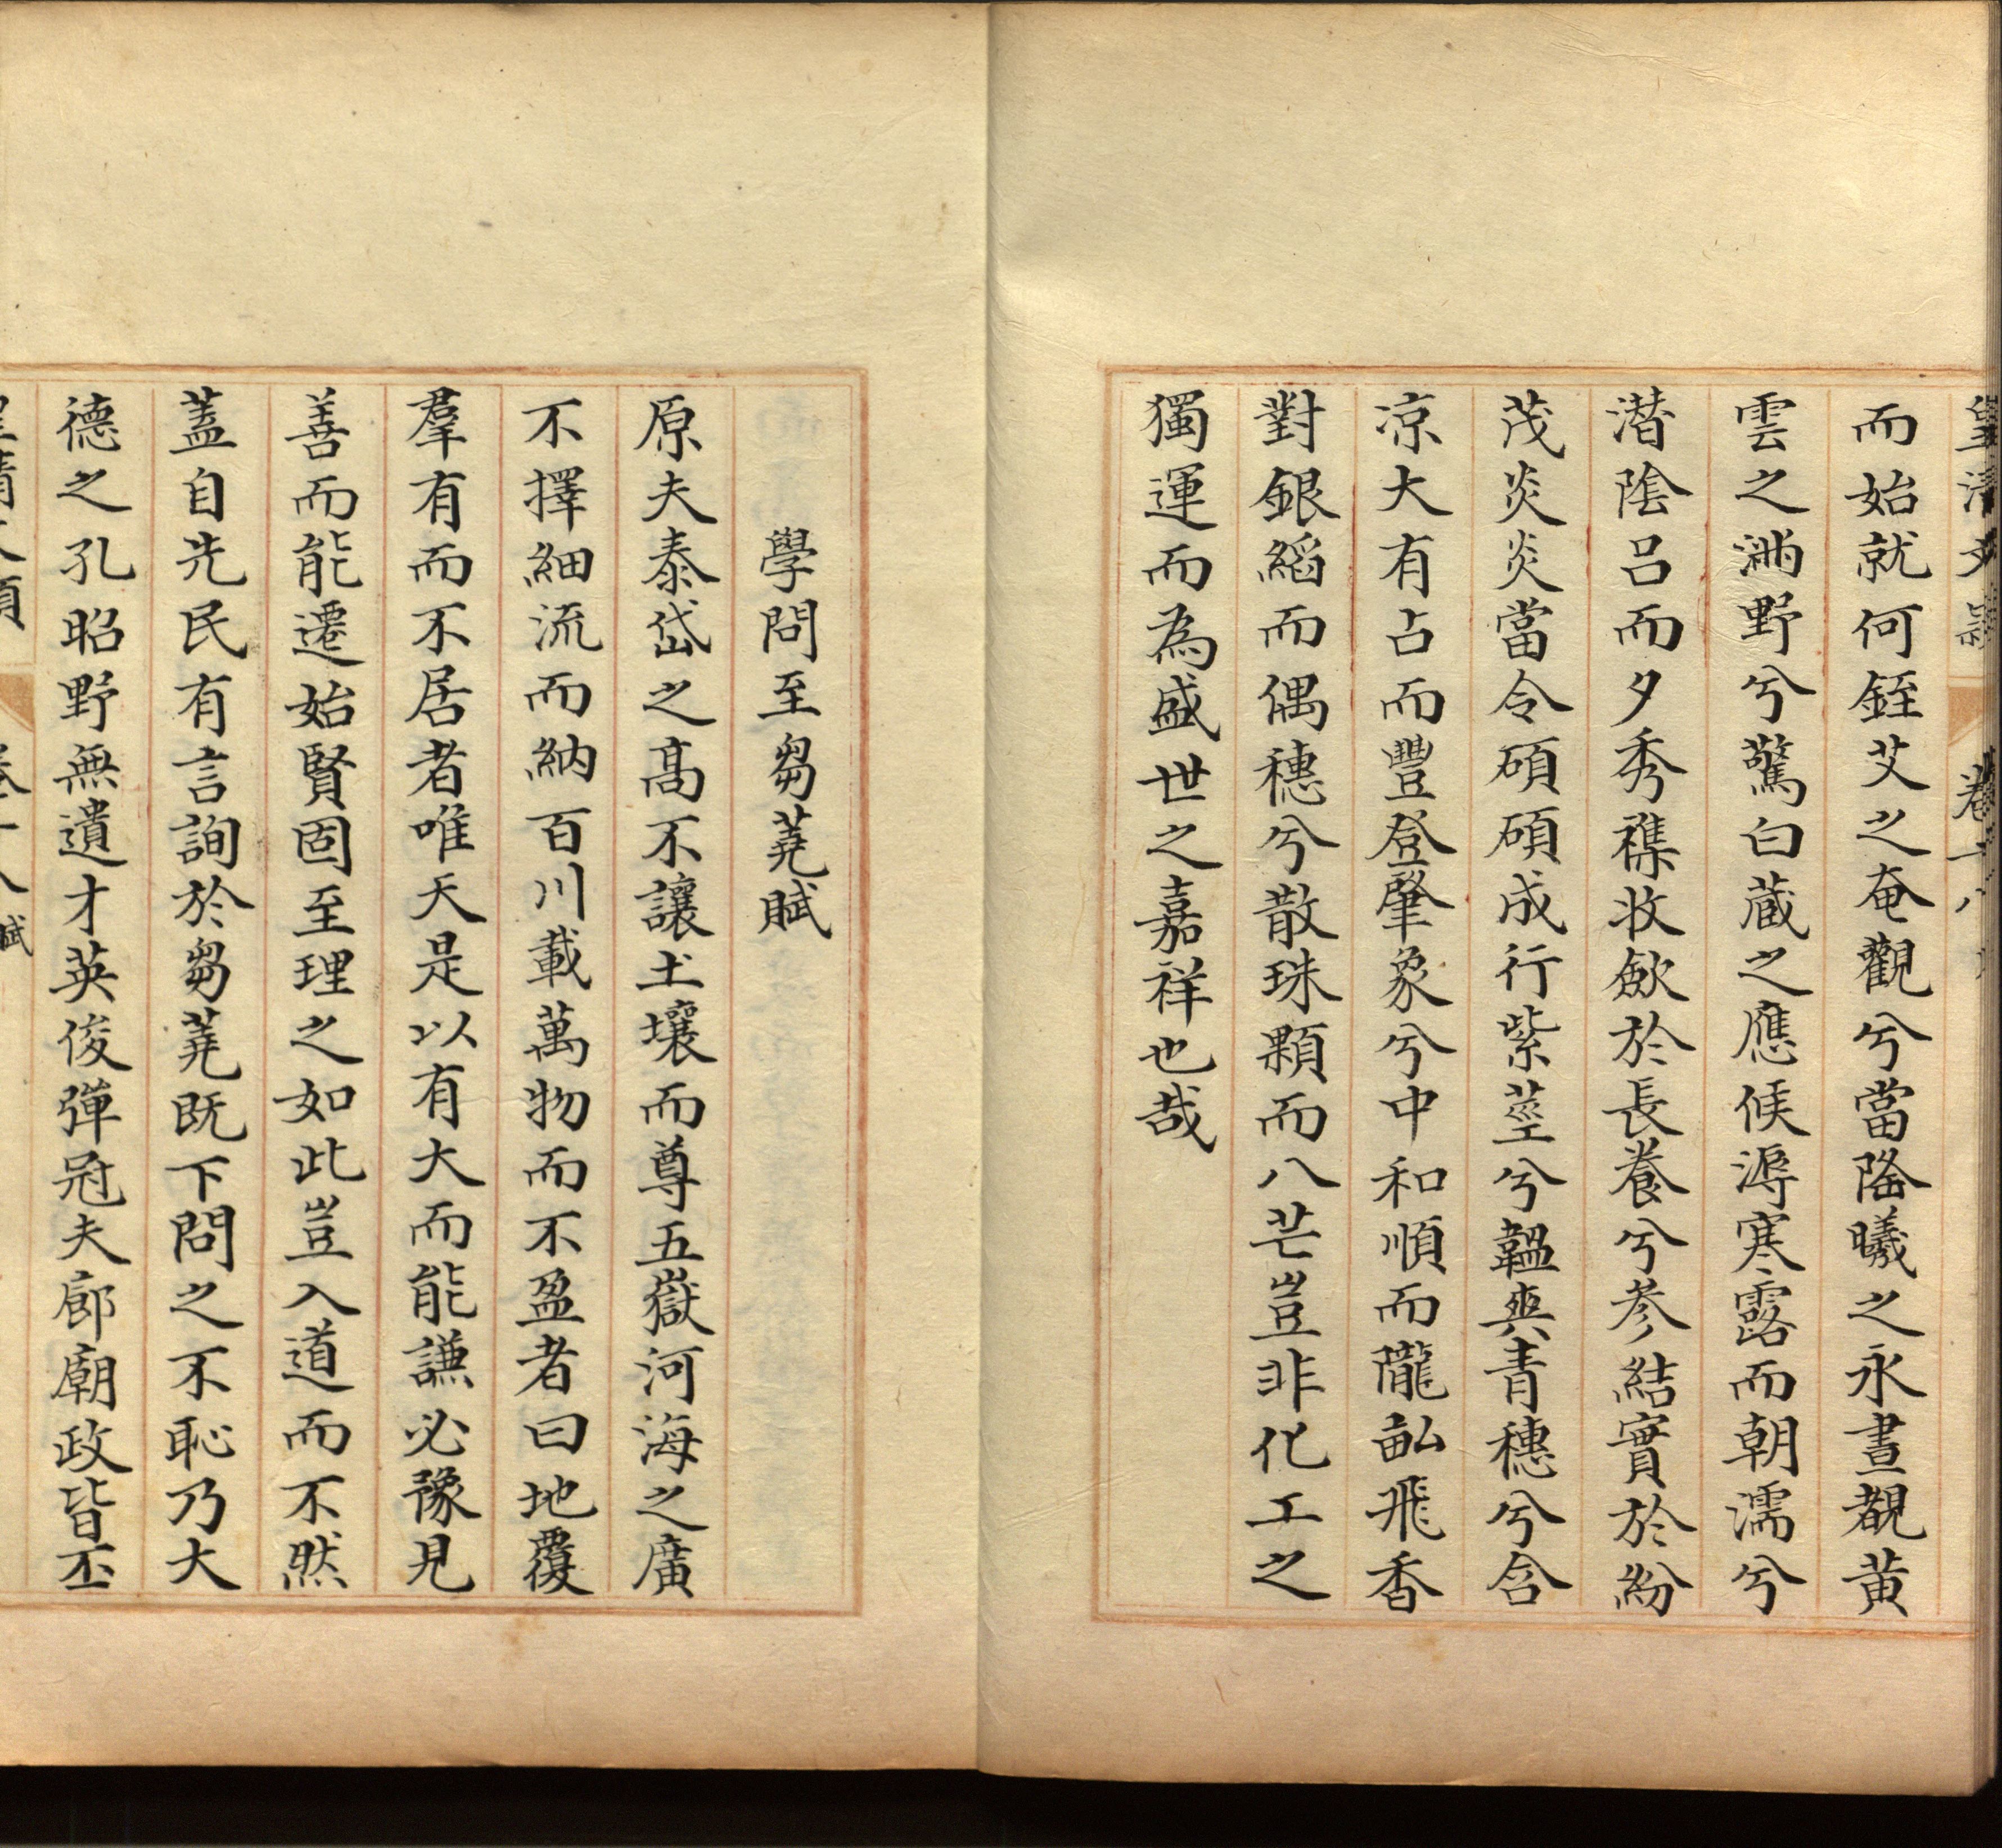 皇清文穎 卷十八
而始就何銍艾之奄觀兮當隆曦之永晝覩黃
雲之滿野兮驚白藏之應候溽寒露而朝濡兮
潛陰呂而夕秀穕收斂於長養兮參結實於紛
茂炎炎當令碩碩成行紫莖兮韞輿青穗兮含
涼大有占而豐登肇象兮中和順而隴畝飛香
對銀縚而偶穗兮散珠顆而八芒豈非化工之
獨運而為盛世之嘉祥也哉
學問至芻蕘賦
原夫泰岱之高不讓土壤而尊五嶽河海之廣
不擇細流而納百川載萬物而不盈者曰地覆
羣有而不居者唯天是以有大而能謙必豫見
善而能遷始賢固至理之如此豈入道而不然
蓋自先民有言詢於芻蕘既下問之不恥乃大
德之孔昭野無遺才英俊彈冠夫廊廟政皆丕
皇清文穎 卷十八 賦